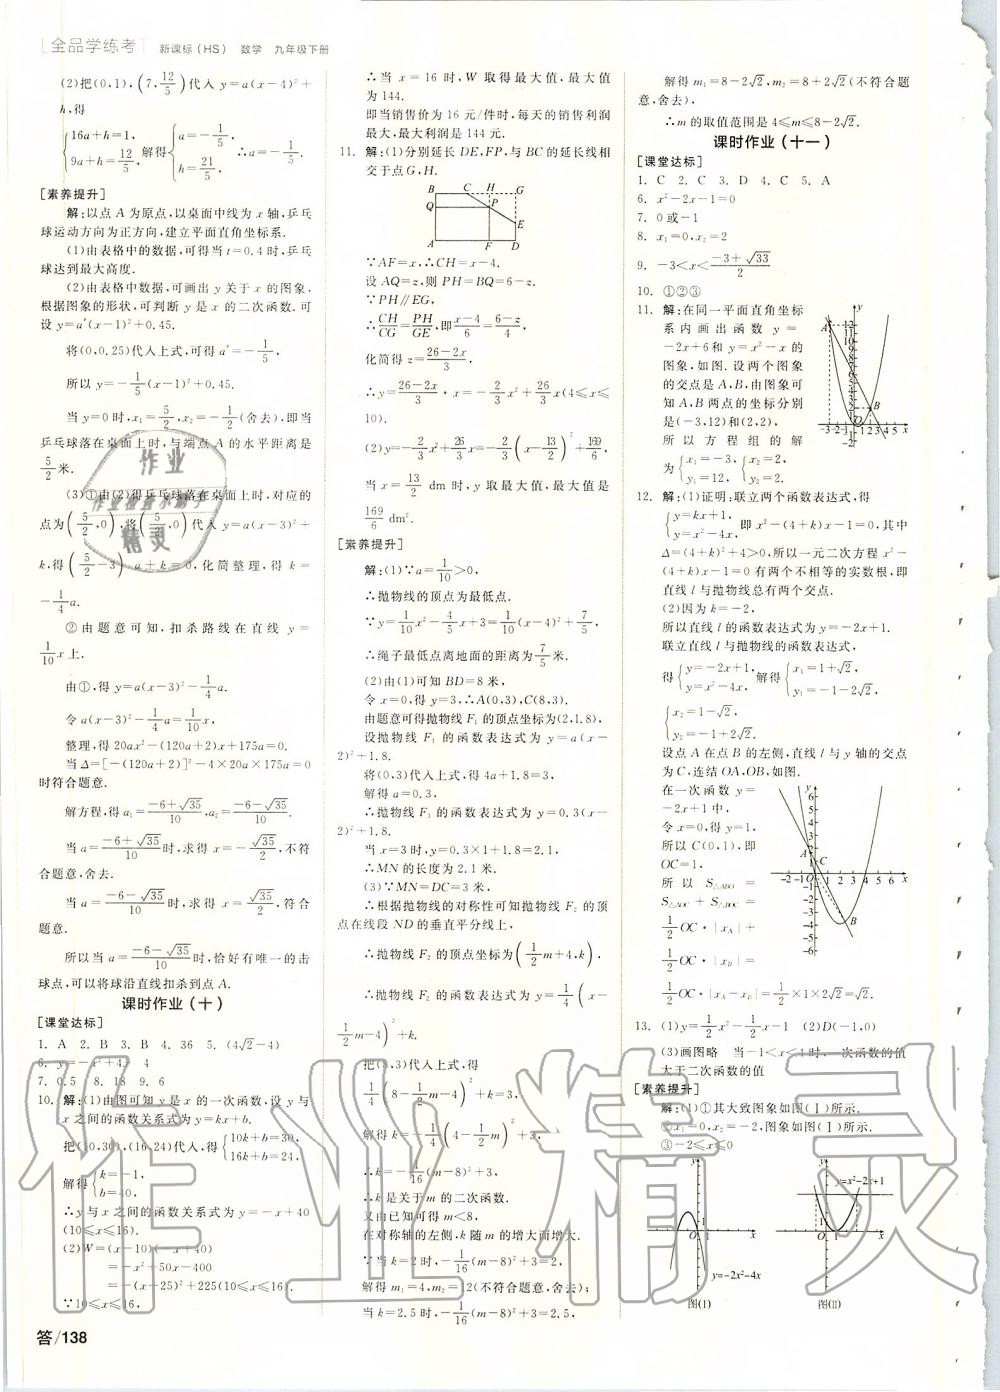 全品学练考 新课标(HS) 数学 九年级下册
(2)把(0,1),(7,12/5)代入 y=a(x-4)²+
h,得
{16a+h=1, 9a+h=12/5, 解得{a=-1/5, h=21/5, ∴a=-1/5.
[素养提升]
解:以点 A 为原点,以桌面中线为 x 轴,乒乓
球运动方向为正方向,建立平面直角坐标系.
(1)由表格中的数据,可得当 t=0.4 时,乒乓
球达到最大高度.
(2)由表格中数据,可画出 y 关于 x 的图象,
根据图象的形状,可判断 y 是 x 的二次函数.可
设 y=a′(x-1)²+0.45.
将(0,0.25)代入上式,可得 a′=-1/5,
所以 y=-1/5(x-1)²+0.45.
当 y=0 时,x₁=5/2,x₂=-1/2(舍去),即当
乒乓球落在桌面上时,与端点 A 的水平距离是
5/2米.
(3)①由(2)得乒乓球落在桌面上时,对应的
点为(5/2,0),将(5/2,0)代入 y=a(x-3)²+
k,得(5/2-3)²a+k=0,化简整理,得 k=
-1/4a.
②由题意可知,扣杀路线在直线 y=
1/10x 上.
由①,得 y=a(x-3)²-1/4a.
令 a(x-3)²-1/4a=1/10x,
整理,得 20ax²-(120a+2)x+175a=0.
当Δ=[-(120a+2)]²-4×20a×175a=0
时符合题意.
解方程,得 a₁=(-6+√35)/10,a₂=(-6-√35)/10.
当 a=(-6+√35)/10时,求得 x=-√35/2,不符
合题意,舍去.
当 a=(-6-√35)/10时,求得 x=√35/2,符合
题意.
所以当 a=(-6-√35)/10时,恰好有唯一的击
球点,可以将球沿直线扣杀到点 A.
课时作业(十)
[课堂达标]
1. A 2. B 3. B 4. 36 5. (4√2-4)
6. y=-x²+4x 4
7. 0.5 8. 18 9. 6
10. 解:(1)由图可知 y 是 x 的一次函数,设 y 与
x 之间的函数关系式为 y=kx+b.
把(10,30),(16,24)代入,得{10k+b=30, 16k+b=24,
解得{k=-1, b=40,
∴y 与 x 之间的函数关系式为 y=-x+40
(10≤x≤16).
(2)W=(x-10)(-x+40)
=-x²+50x-400
=-(x-25)²+225(10≤x≤16).
∵10≤x≤16,
答/138
∴当 x=16 时,W 取得最大值,最大值
为 144.
即当销售价为 16 元/件时,每天的销售利润
最大,最大利润是 144 元.
11. 解:(1)分别延长 DE,FP,与 BC 的延长线相
交于点 G,H.
B C H G
Q P
E
A F D
∵AF=x,∴CH=x-4.
设 AQ=z,则 PH=BQ=6-z.
∵PH∥EG,
∴CH/CG=PH/GE,即(x-4)/6=(6-z)/4,
化简得 z=(26-2x)/3,
∴y=(26-2x)/3·x=-2/3x²+26/3x(4≤x≤
10).
(2)y=-2/3x²+26/3x=-2/3(x-13/2)²+169/6,
当 x=13/2 dm 时,y 取最大值,最大值是
169/6 dm².
[素养提升]
解:(1)∵a=1/10>0,
∴抛物线的顶点为最低点.
∵y=1/10x²-4/5x+3=1/10(x-4)²+7/5,
∴绳子最低点离地面的距离为7/5米.
(2)由(1)可知 BD=8 米,
令 x=0,得 y=3,∴A(0,3),C(8,3).
由题意可得抛物线 F₁ 的顶点坐标为(2,1.8),
设抛物线 F₁ 的函数表达式为 y=a(x-
2)²+1.8.
将(0,3)代入上式,得 4a+1.8=3,
解得 a=0.3,
∴抛物线 F₁ 的函数表达式为 y=0.3(x-
2)²+1.8.
当 x=3 时,y=0.3×1+1.8=2.1,
∴MN 的长度为 2.1 米.
(3)∵MN=DC=3 米,
∴根据抛物线的对称性可知抛物线 F₂ 的顶
点在线段 ND 的垂直平分线上,
∴抛物线 F₂ 的顶点坐标为(1/2m+4,k),
∴抛物线 F₂ 的函数表达式为 y=1/4(x-
1/2m-4)²+k.
把(8,3)代入上式,得
1/4(8-1/2m-4)²+k=3,
解得 k=-1/4(4-1/2m)²+3,
k=-1/16(m-8)²+3,
∴k 是关于 m 的二次函数.
又由已知可得 m<8,
在对称轴的左侧,k 随 m 的增大而增大.
∵当 k=2 时,-1/16(m-8)²+3=2,
解得 m₁=4,m₂=12(不符合题意,舍去);
当 k=2.5 时,-1/16(m-8)²+3=2.5,
解得 m₁=8-2√2,m₂=8+2√2(不符合题
意,舍去),
∴m 的取值范围是 4≤m≤8-2√2.
课时作业(十一)
[课堂达标]
1. C 2. C 3. D 4. C 5. A
6. x²-2x-1=0
7. 0 或-1
8. x₁=0,x₂=2
9. -3<x<(-3+√33)/2
10. ①②③
11. 解:在同一平面直角坐标
系内画出函数 y=
-2x+6 和 y=x²-x 的
图象,如图.设两个图象
的交点是 A,B,由图象可
知 A,B 两点的坐标分别
是(-3,12)和(2,2),
所以方程组的解
为{x₁=-3, y₁=12, {x₂=2, y₂=2.
12. 解:(1)证明:联立两个函数表达式,得
{y=kx+1, y=x²-4x, 即 x²-(4+k)x-1=0,其中
Δ=(4+k)²+4>0,所以一元二次方程 x²-
(4+k)x-1=0 有两个不相等的实数根,即
直线 l 与抛物线总有两个交点.
(2)因为 k=-2,
所以直线 l 的函数表达式为 y=-2x+1.
联立直线 l 与抛物线的函数表达式,
得{y=-2x+1, y=x²-4x, 解得{x₁=1+√2, y₁=-1-2√2,
{x₂=1-√2, y₂=-1+2√2.
设点 A 在点 B 的左侧,直线 l 与 y 轴的交点
为 C,连结 OA,OB,如图.
在一次函数 y=
-2x+1 中,
令 x=0,得 y=1,
所以 C(0,1),即
OC=1,
所以 S△ABO=
S△AOC+S△BOC=
1/2OC·|xA|+
1/2OC·|xB|=
1/2OC·|xA-xB|=1/2×1×2√2=√2.
13. (1)y=1/2x²-1/2x-1 (2)D(-1,0)
(3)画图略 当-1<x<4 时,一次函数的值
大于二次函数的值
[素养提升]
解:(1)①其大致图象如图(Ⅰ)所示.
②x₁=0,x₂=-2,图象如图(Ⅰ)所示.
③-2≤x≤0
y=-2x²-4x
图(Ⅰ)
y=x²-2x+1
图(Ⅱ)
作业
作业检查小助手
精灵
作业精灵